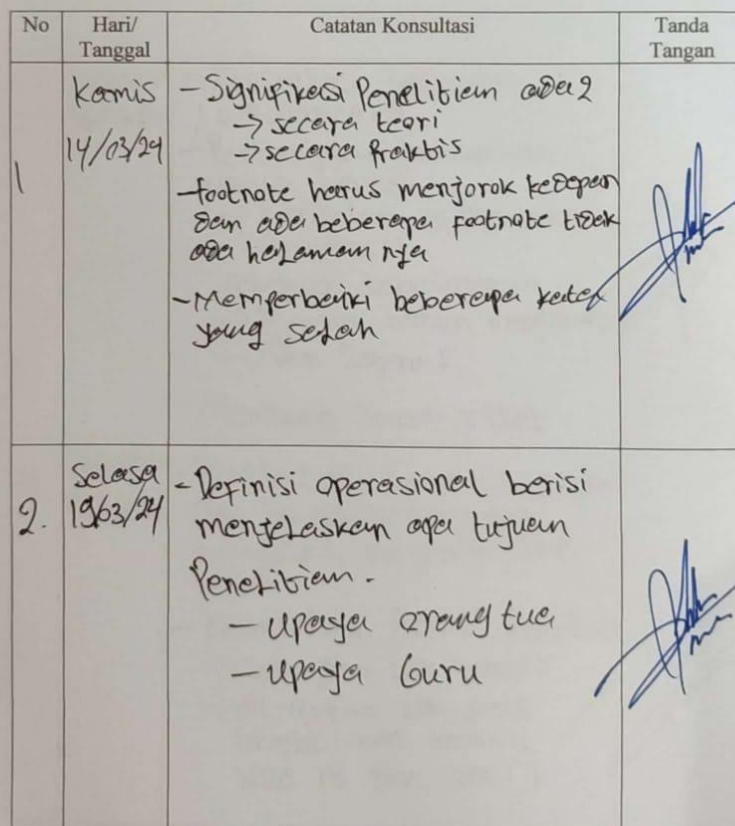 No Hari/ Tanggal Catatan Konsultasi Tanda Tangan
1 Kamis 14/03/24
- Signifikasi Penelitian ada 2
→ secara teori
→ secara Praktis
- footnote harus menjorok kedepan
dan ada beberapa footnote tidak
ada halaman nya
- Memperbaiki beberapa kata
yang salah
2. Selasa 19/03/24
- Definisi operasional berisi
menjelaskan apa tujuan
Penelitian.
- upaya orang tua
- upaya Guru